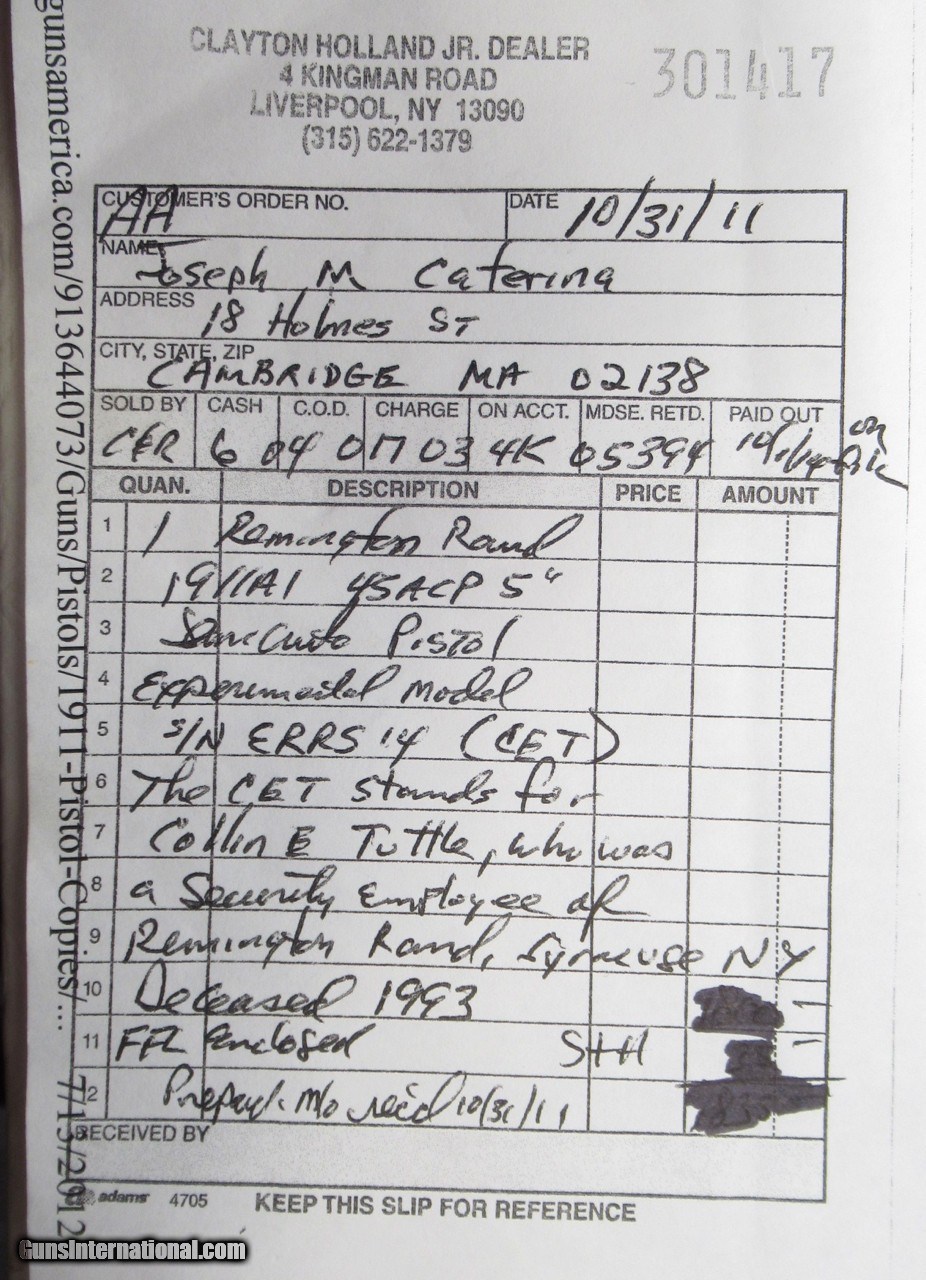 CLAYTON HOLLAND JR. DEALER
4 KINGMAN ROAD
LIVERPOOL, NY 13090
(315) 622-1379
301417
gunsamerica.com/913644073/Guns/Pistols/1911-Pistol-Copies/... 7/13/2012
CUSTOMER'S ORDER NO. AA
DATE 10/31/11
NAME Joseph M Caterina
ADDRESS 18 Holmes ST
CITY, STATE, ZIP CAMBRIDGE MA 02138
SOLD BY CASH C.O.D. CHARGE ON ACCT. MDSE. RETD. PAID OUT
CER 6 04 017 03 4K 05394 on
QUAN. DESCRIPTION PRICE AMOUNT
1 1 Remington Rand
2 1911A1 45ACP 5"
3 Semi Auto Pistol
4 Experimental Model
5 S/N ERRS 14 (CET)
6 The CET stands for
7 Collin E Tuttle, who was
8 a Security Employee of
9 Remington Rand, Syracuse NY
10 Deceased 1993
11 FFL Enclosed S+H
12 Prepayt. M/O rec'd 10/31/11
RECEIVED BY
adams 4705 KEEP THIS SLIP FOR REFERENCE
GunsInternational.com